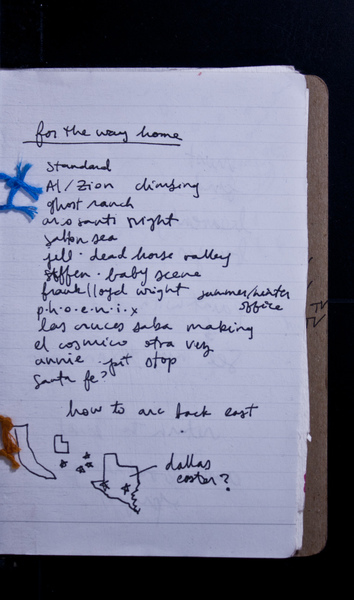 for the way home
standard
Al/Zion climbing
ghost ranch
arcosanti night
salton sea
jill · dead horse valley
steffen · baby scene
frank lloyd wright summer/winter office
p·h·o·e·n·i·x
las cruces salsa making
el cosmico otra vez
annie · pit stop
Santa fe?
how to arc back east
dallas
easter?